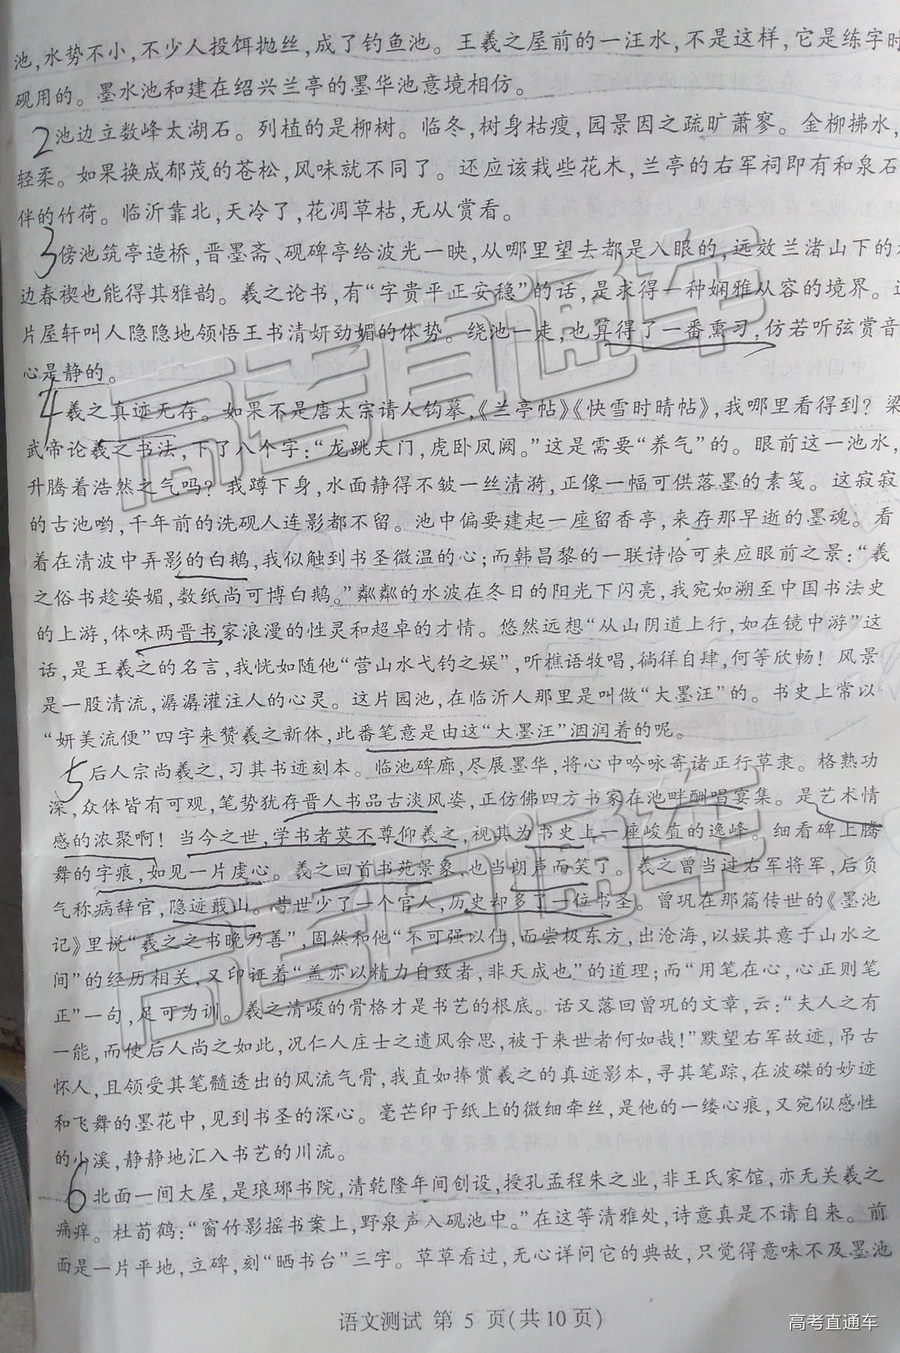 池,水势不小,不少人投饵抛丝,成了钓鱼池。王羲之屋前的一汪水,不是这样,它是练字时
砚用的。墨水池和建在绍兴兰亭的墨华池意境相仿。
2 池边立数峰太湖石。列植的是柳树。临冬,树身枯瘦,园景因之疏旷萧寥。金柳拂水,
轻柔。如果换成郁茂的苍松,风味就不同了。还应该栽些花木,兰亭的右军祠即有和泉石
伴的竹荷。临沂靠北,天冷了,花凋草枯,无从赏看。
3 傍池筑亭造桥,晋墨斋、砚碑亭给波光一映,从哪里望去都是入眼的,远效兰渚山下的
边春禊也能得其雅韵。羲之论书,有“字贵平正安稳”的话,是求得一种娴雅从容的境界。
片屋轩叫人隐隐地领悟王书清妍劲媚的体势。绕池一走,也算得了一番熏习,仿若听弦赏音
心是静的。
4 羲之真迹无存。如果不是唐太宗请人钩摹,《兰亭帖》《快雪时晴帖》,我哪里看得到?梁
武帝论羲之书法,下了八个字:“龙跳天门,虎卧凤阙。”这是需要“养气”的。眼前这一池水,
升腾着浩然之气吗?我蹲下身,水面静得不皱一丝清漪,正像一幅可供落墨的素笺。这寂寂
的古池哟,千年前的洗砚人连影都不留。池中偏要建起一座留香亭,来存那早逝的墨魂。看
着在清波中弄影的白鹅,我似触到书圣微温的心;而韩昌黎的一联诗恰可来应眼前之景:“羲
之俗书趁姿媚,数纸尚可博白鹅。”粼粼的水波在冬日的阳光下闪亮,我宛如溯至中国书法史
的上游,体味两晋书家浪漫的性灵和超卓的才情。悠然远想“从山阴道上行,如在镜中游”这
话,是王羲之的名言,我恍如随他“营山水弋钓之娱”,听樵语牧唱,徜徉自肆,何等欣畅!风景
是一股清流,潺潺灌注人的心灵。这片园池,在临沂人那里是叫做“大墨汪”的。书史上常以
“妍美流便”四字来赞羲之新体,此番笔意是由这“大墨汪”洇润着的呢。
5 后人宗尚羲之,习其书迹刻本。临池碑廊,尽展墨华,将心中吟咏寄诸正行草隶。格熟功
深,众体皆有可观,笔势犹存晋人书品古淡风姿,正仿佛四方书家在池畔酬唱宴集。是艺术情
感的浓聚啊!当今之世,学书者莫不尊仰羲之,视其为书史上一座峻值的逸峰。细看碑上腾
舞的字痕,如见一片虔心。羲之回首书苑景象,也当朗声而笑了。羲之曾当过右军将军,后负
气称病辞官,隐迹蕺山。尘世少了一个官人,历史却多了一位书圣。曾巩在那篇传世的《墨池
记》里说“羲之之书晚乃善”,固然和他“不可强以仕,而尝极东方,出沧海,以娱其意于山水之
间”的经历相关,又印证着“盖亦以精力自致者,非天成也”的道理;而“用笔在心,心正则笔
正”一句,足可为训。羲之清峻的骨格才是书艺的根底。话又落回曾巩的文章,云:“夫人之有
一能,而使后人尚之如此,况仁人庄士之遗风余思,被于来世者何如哉!”默望右军故迹,吊古
怀人,且领受其笔髓透出的风流气骨,我直如捧赏羲之的真迹影本,寻其笔踪,在波磔的妙迹
和飞舞的墨花中,见到书圣的深心。毫芒印于纸上的微细牵丝,是他的一缕心痕,又宛似感性
的小溪,静静地汇入书艺的川流。
6 北面一间大屋,是琅琊书院,清乾隆年间创设,授孔孟程朱之业,非王氏家馆,亦无关羲之
痛痒。杜荀鹤:“窗竹影摇书案上,野泉声入砚池中。”在这等清雅处,诗意真是不请自来。前
面是一片平地,立碑,刻“晒书台”三字。草草看过,无心详问它的典故,只觉得意味不及墨池
语文测试 第 5 页(共10页)
高考直通车
高考直通车
高考直通车